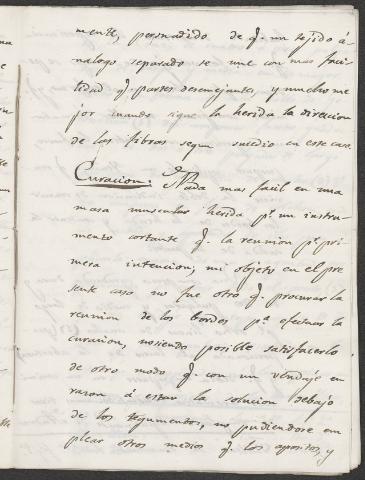 mente, persuadido de q.e un tejido á-
nalogo separado se une con mas faci-
lidad q.e partes desemejantes, y mucho me
jor cuando sigue la herida la direccion
de las fibras segun sucedio en este caso
Curacion: Nada mas facil en una
masa muscular herida p.r un instru-
mento cortante q.e la reunion p.r pri-
mera intencion; mi objeto en el pre
sente caso no fue otro q.e procurar la
reunion de los bordes p.a efectuar la
curacion, nosiendo posible satisfacerlo
de otro modo q.e con un vendaje en
razon á estar la solucion debajo
de los tegumentos, no pudiendose em
plear otros medios q.e los apositos, y